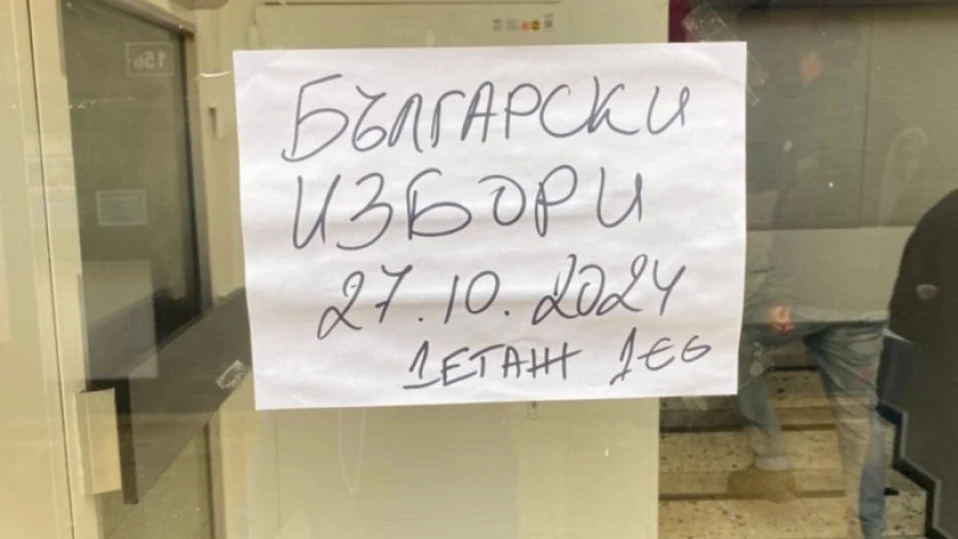 БЪЛГАРСКИ
ИЗБОРИ
27.10.2024
1 ЕТАЖ 1Є6